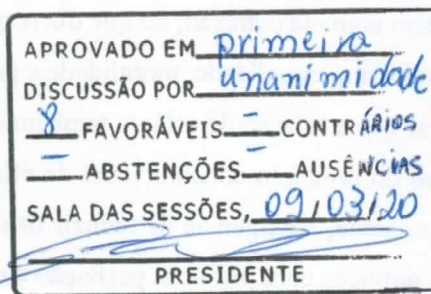 APROVADO EM primeira
DISCUSSÃO POR unanimidade
8 FAVORÁVEIS - CONTRÁRIOS
- ABSTENÇÕES - AUSÊNCIAS
SALA DAS SESSÕES, 09/03/20
PRESIDENTE